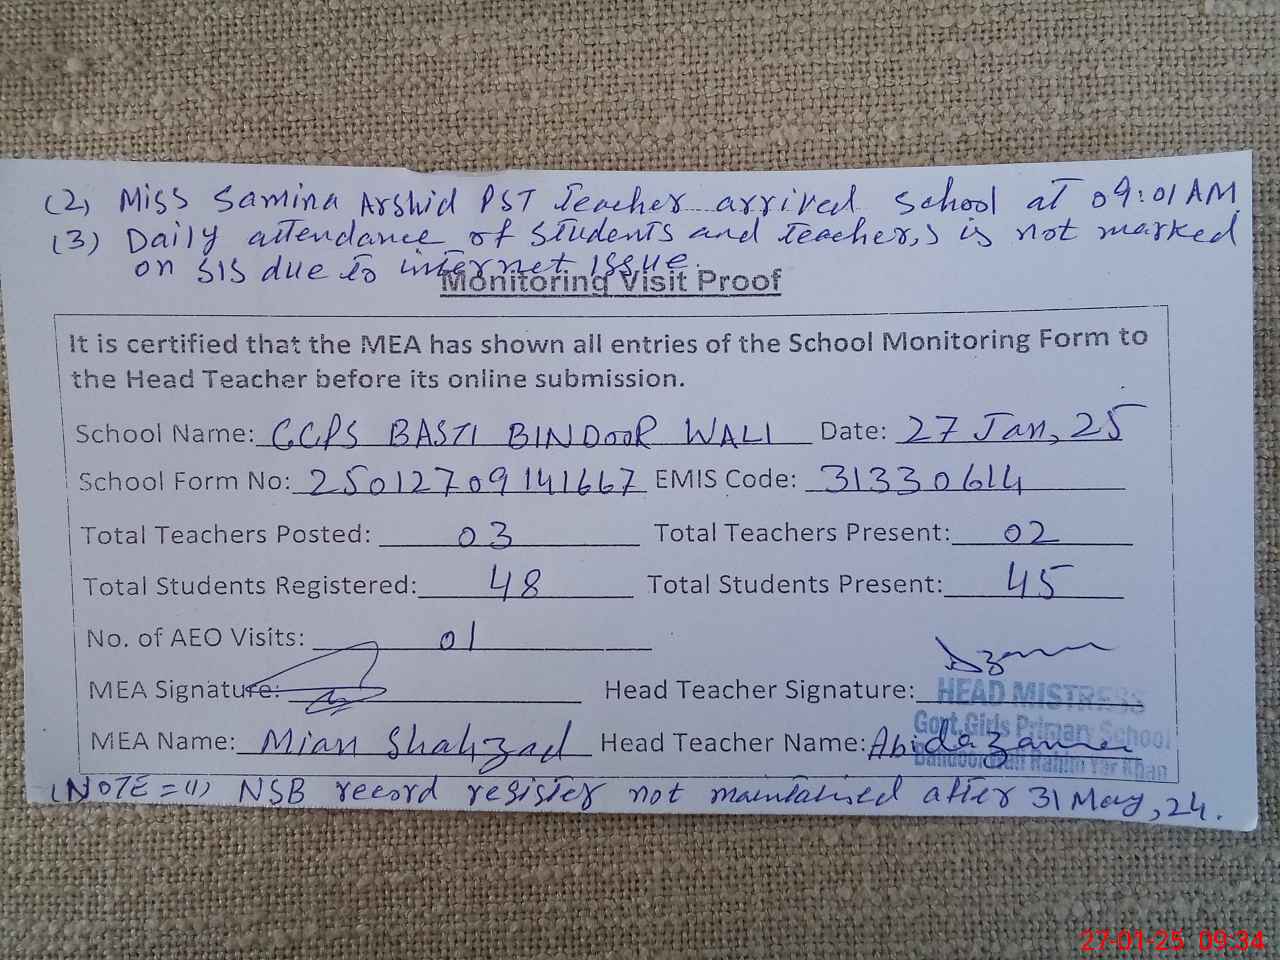 (2) Miss Samina Arshid PST Teacher arrived school at 09:01 AM
(3) Daily attendance of students and teacher,s is not marked
on SIS due to internet issue.
Monitoring Visit Proof
It is certified that the MEA has shown all entries of the School Monitoring Form to
the Head Teacher before its online submission.
School Name: GCPS BASTI BINDOOR WALI Date: 27 Jan, 25
School Form No: 25012709141667 EMIS Code: 31330614
Total Teachers Posted: 03 Total Teachers Present: 02
Total Students Registered: 48 Total Students Present: 45
No. of AEO Visits: 01
MEA Signature: Head Teacher Signature:
HEAD MISTRESS
Govt. Girls Primary School
MEA Name: Mian Shahzad Head Teacher Name: Abida
Rahim Yar Khan
(NOTE = (1) NSB record register not maintained after 31 May, 24.
27-01-25 09:34